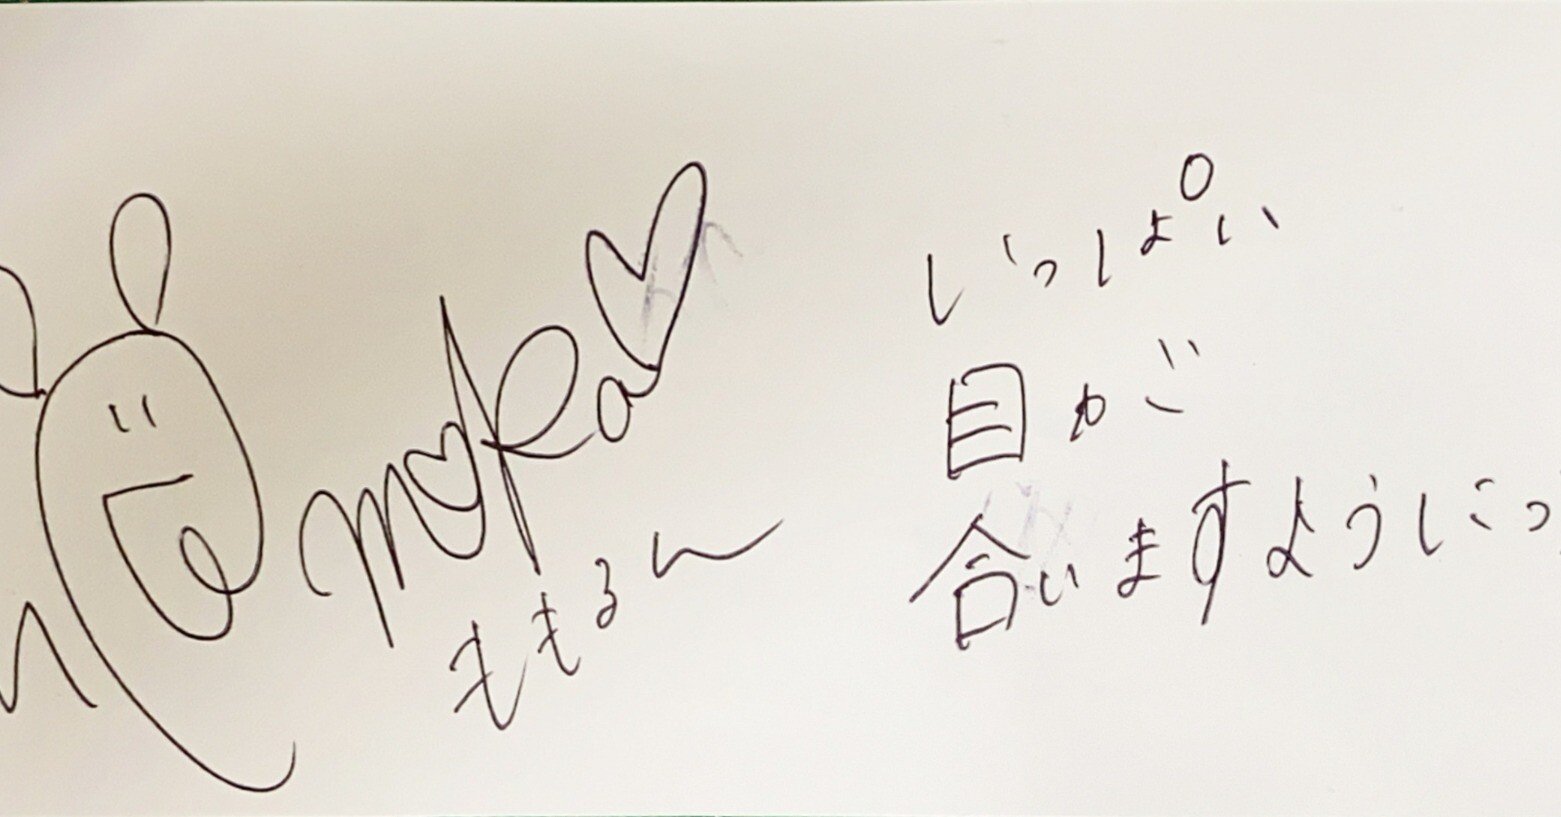 moka
ももるん
いっぱい
目が
合いますようにっ